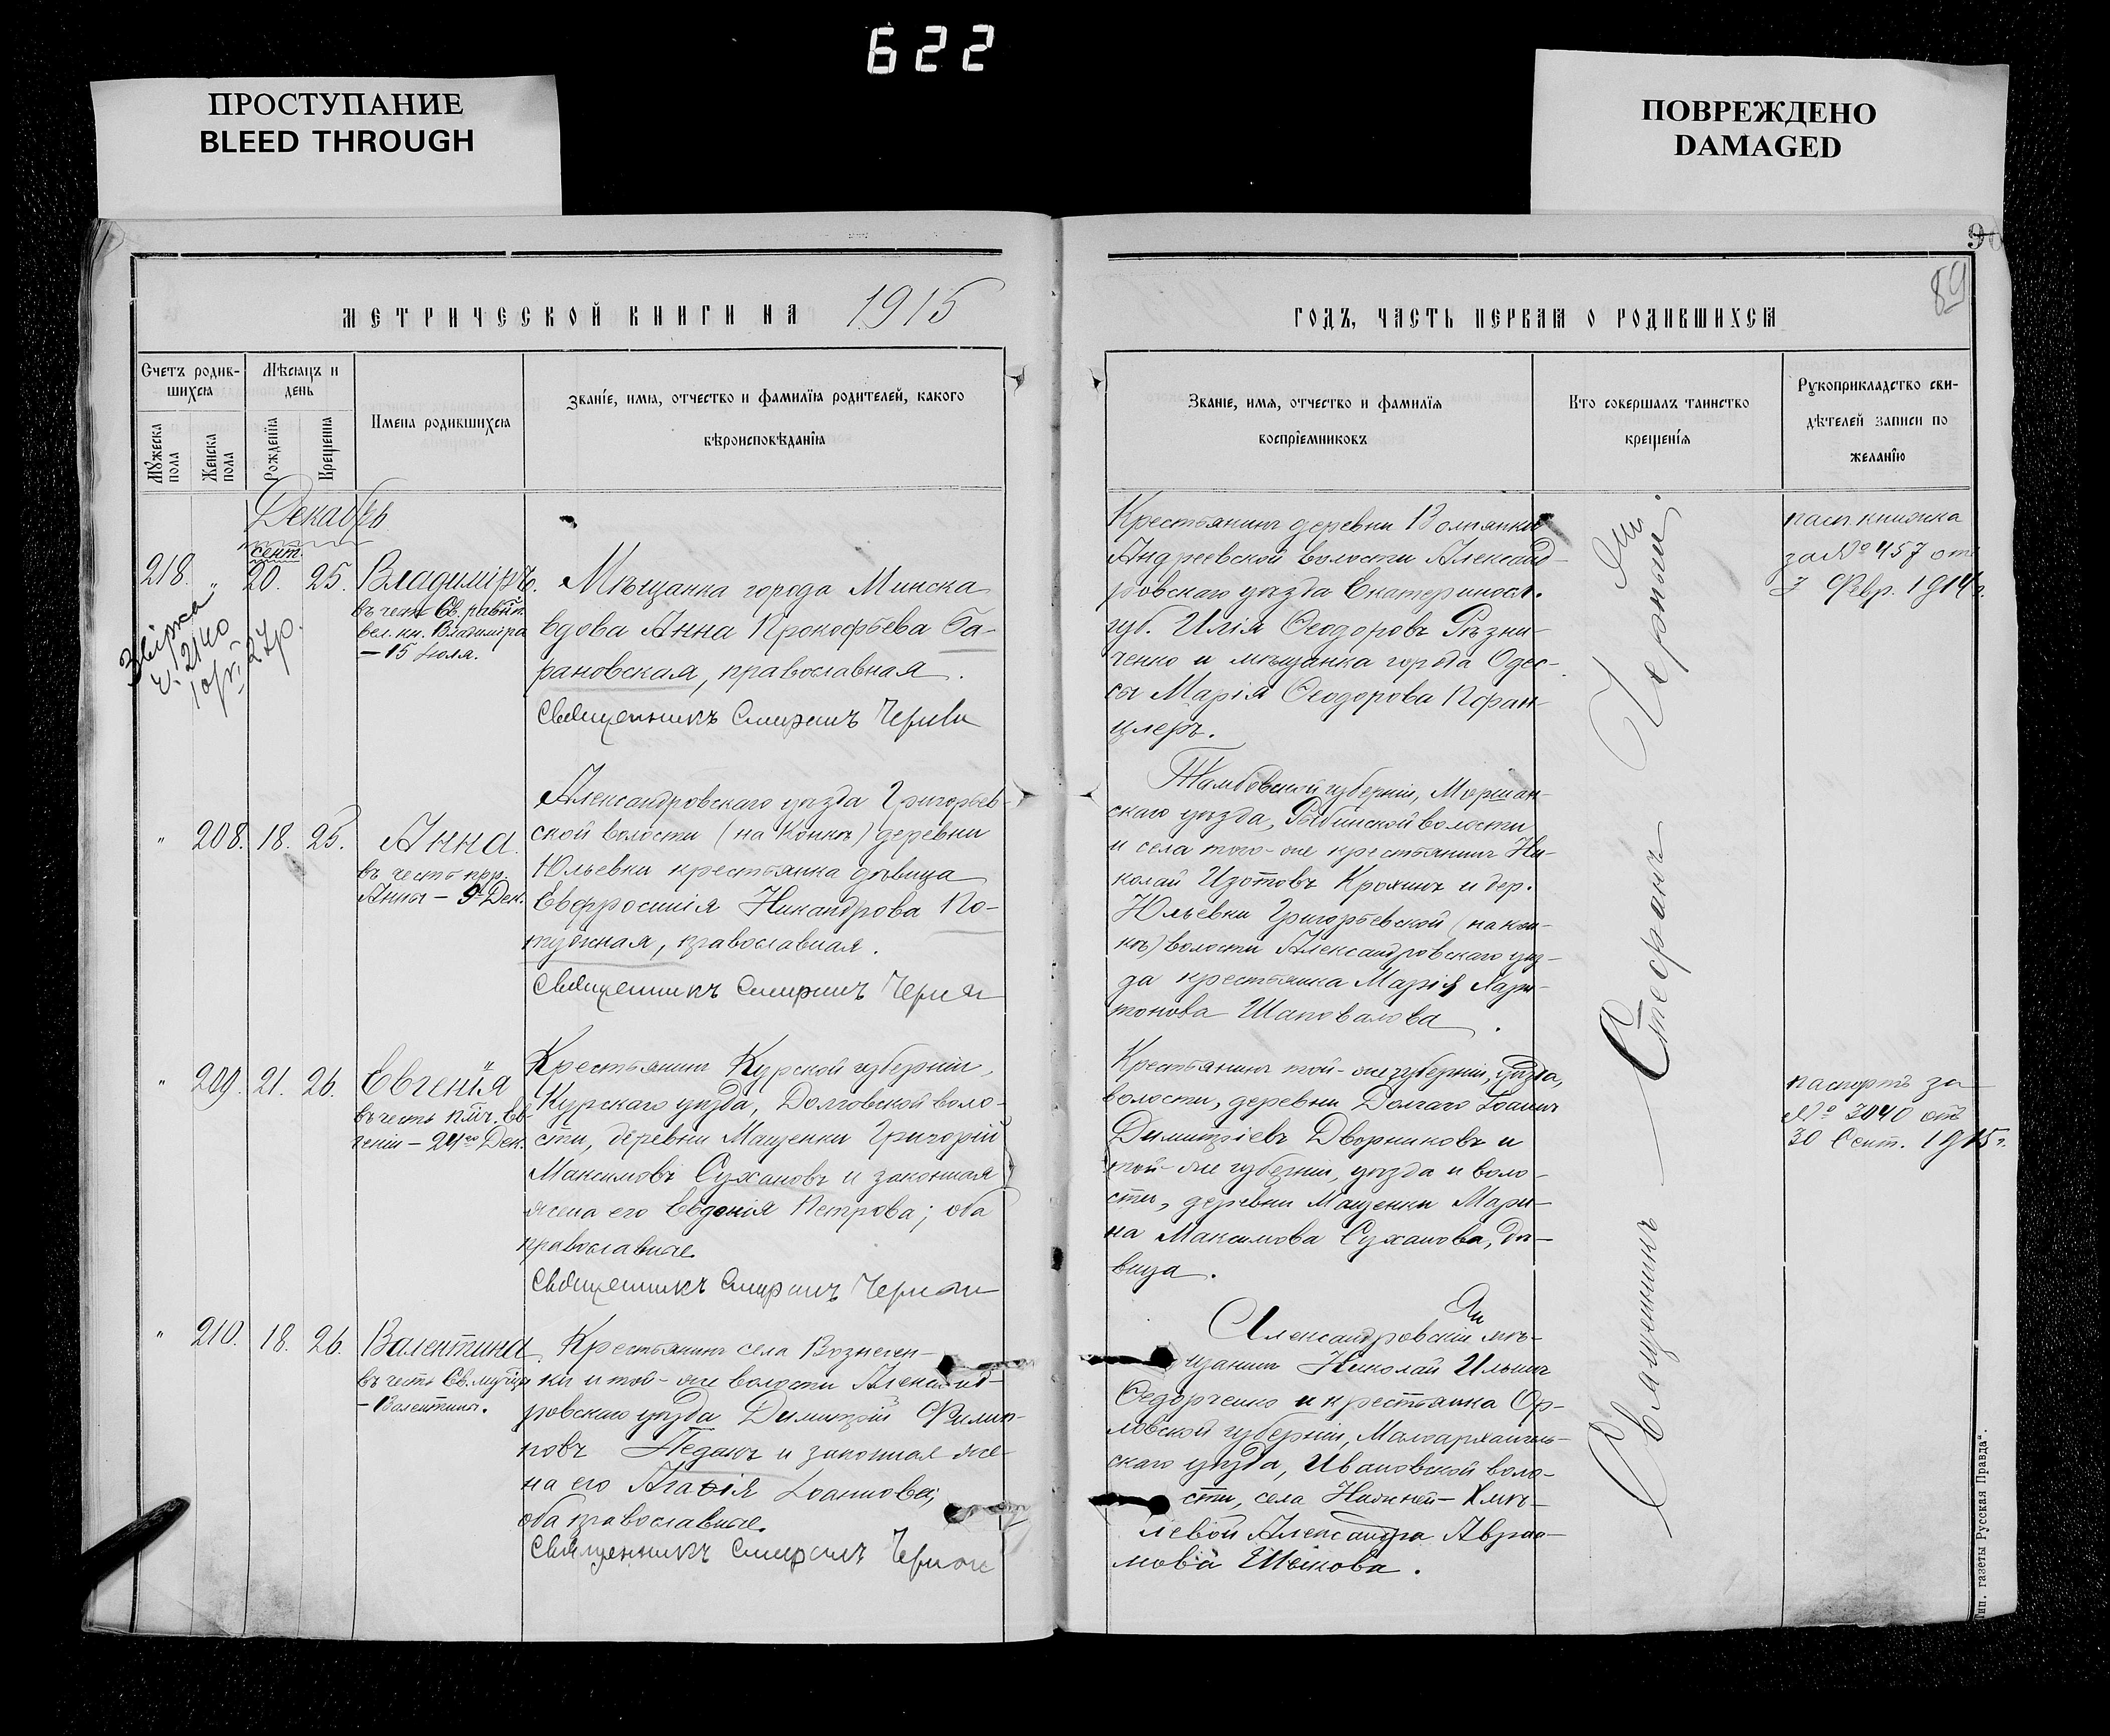 622
ПРОСТУПАНИЕ
BLEED THROUGH
ПОВРЕЖДЕНО
DAMAGED
90
89
МЕТРИЧЕСКОЙ КНИГИ НА 1915
ГОДЪ, ЧАСТЬ ПЕРВАЯ О РОДИВШИХСЯ
Счетъ родив-
шихся
Мѣсяцъ и
день
Имена родившихся
Званіе, имя, отчество и фамилія родителей, какого
вѣроисповѣданія
Мужеска пола
Женска пола
Рожденія
Крещенія
Званіе, имя, отчество и фамилія
воспріемниковъ
Кто совершалъ таинство
крещенія
Рукоприкладство сви-
дѣтелей записи по
желанію
Декабрь
сент.
218. " 20. 25. Владиміръ.
въ честь Св. равноап.
вел. кн. Владиміра
– 15 Іюля.
Звірка
Мѣщанка города Минска
вдова Анна Прокофьева Ба-
рановская, православная.
Священникъ Стефанъ Черный
Крестьянинъ деревни Волнянки
Андреевской волости Александ-
ровскаго уѣзда Екатериносл.
губ. Илія Ѳеодоровъ Рѣзни-
ченко и мѣщанка города Одес-
сы Марія Ѳеодорова Пфан-
цлеръ.
пасп. книжка
за № 457 отъ
7 Февр. 1914 г.
" 208. 18. 25. Анна.
въ честь прр.
Анны – 9 Дек.
Александровскаго уѣзда Григорьев-
ской волости (на Конкѣ) деревни
Юльевки крестьянка дѣвица
Евфросинія Никандрова По-
тужная, православная.
Священникъ Стефанъ Черный
Тамбовской губерніи, Моршан-
скаго уѣзда, Рыбинской волости
и села того-же крестьянинъ Ни-
колай Изотовъ Крохинъ и дер.
Юльевки Григорьевской (на Кон-
кѣ) волости Александровскаго уѣз-
да крестьянка Марія Хари-
тонова Шаповалова.
" 209. 21. 26. Евгенія
въ честь пмч. Ев-
геніи – 24го Дек.
Крестьянинъ Курской губерніи,
Курскаго уѣзда, Долговской воло-
сти, деревни Мащенки Григорій
Максимовъ Сухановъ и законная
жена его Евдокія Петрова; оба
православные.
Священникъ Стефанъ Черный
Крестьянинъ той-же губерніи, уѣзда,
волости, деревни Долгаго Іоаннъ
Димитріевъ Дворниковъ и
той-же губерніи, уѣзда и воло-
сти, деревни Мащенки Мари-
на Максимова Суханова, дѣ-
вица.
паспортъ за
№ 3040 отъ
30 Сент. 1915 г.
" 210. 18. 26. Валентина.
въ честь Св. муч-цы
– Валентины.
Крестьянинъ села Вознесен-
ки и той-же волости Александ-
ровскаго уѣзда Димитрій Филип-
повъ Педенъ и законная же-
на его Агаѳія Іоаннова;
оба православные.
Священникъ Стефанъ Черный
Александровскій мѣ-
щанинъ Николай Ильинъ
Ѳедорченко и крестьянка Ор-
ловской губерніи, Малоархангель-
скаго уѣзда, Ивановской воло-
сти, села Нижней-Хмѣ-
левой Александра Авраа-
мова
Священникъ Стефанъ Черный.
Тип. газеты Русская Правда“.